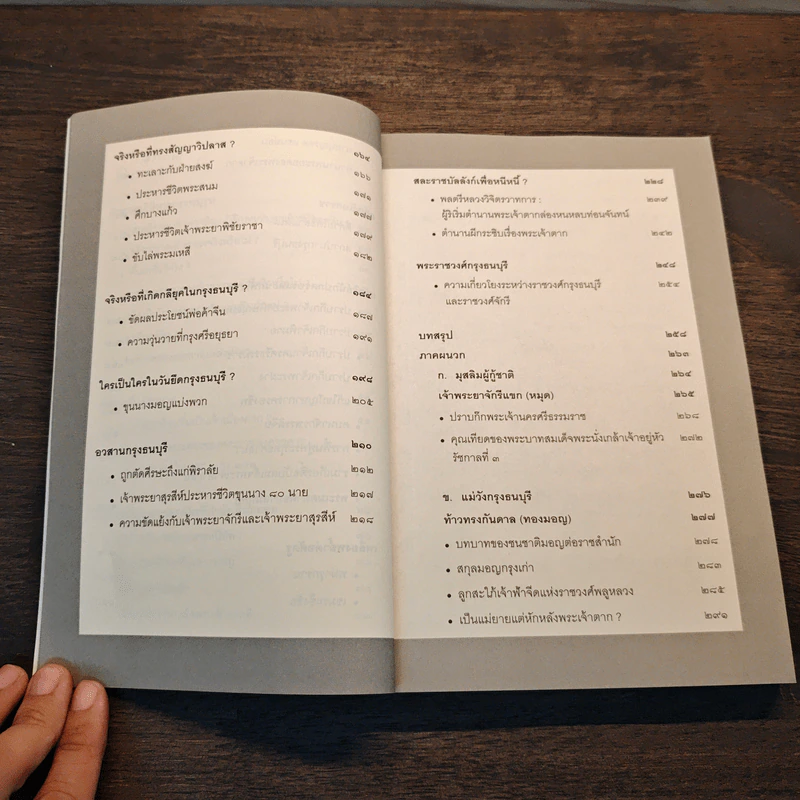 จริงหรือที่ทรงสัญญาวิปลาส ? ๑๖๔
• ทะเลาะกับฝ่ายสงฆ์ ๑๖๖
• ประหารชีวิตพระสนม ๑๗๑
• ศึกบางแก้ว ๑๗๗
• ประหารชีวิตเจ้าพระยาพิชัยราชา ๑๗๙
• ขับไล่พระมเหสี ๑๘๒
จริงหรือที่เกิดกลียุคในกรุงธนบุรี ? ๑๘๔
• ขัดผลประโยชน์พ่อค้าจีน ๑๘๗
• ความวุ่นวายที่กรุงศรีอยุธยา ๑๙๑
ใครเป็นใครในวันยึดกรุงธนบุรี ? ๑๙๘
• ขุนนางมอญแบ่งพวก ๒๐๕
อวสานกรุงธนบุรี ๒๑๐
• ถูกตัดศีรษะถึงแก่พิราลัย ๒๑๒
• เจ้าพระยาสุรสีห์ประหารชีวิตขุนนาง ๘๐ นาย ๒๑๗
• ความขัดแย้งกับเจ้าพระยาจักรีและเจ้าพระยาสุรสีห์ ๒๑๘
สละราชบัลลังก์เพื่อหนีหนี้ ? ๒๒๘
• พลตรีหลวงวิจิตรวาทการ : ๒๓๙
ผู้ริเริ่มตำนานพระเจ้าตากล่องหนหลบท่อนจันทน์
• ตำนานผีกระซิบเรื่องพระเจ้าตาก ๒๔๒
พระราชวงศ์กรุงธนบุรี ๒๔๘
• ความเกี่ยวโยงระหว่างราชวงศ์กรุงธนบุรี ๒๕๔
และราชวงศ์จักรี
บทสรุป ๒๕๘
ภาคผนวก ๒๖๓
ก. มุสลิมผู้กู้ชาติ ๒๖๔
เจ้าพระยาจักรีแขก (หมุด) ๒๖๕
• ปราบกึกพระเจ้านครศรีธรรมราช ๒๖๘
• คุณเทียดของพระบาทสมเด็จพระนั่งเกล้าเจ้าอยู่หัว ๒๗๒
รัชกาลที่ ๓
ข. แม่วังกรุงธนบุรี ๒๗๖
ท้าวทรงกันดาล (ทองมอญ) ๒๗๗
• บทบาทของชนชาติมอญต่อราชสำนัก ๒๗๘
• สกุลมอญกรุงเก่า ๒๘๓
• ลูกสะใภ้เจ้าฟ้าจีดแห่งราชวงศ์พลูหลวง ๒๘๕
• เป็นแม่ยายแต่หักหลังพระเจ้าตาก ? ๒๙๑